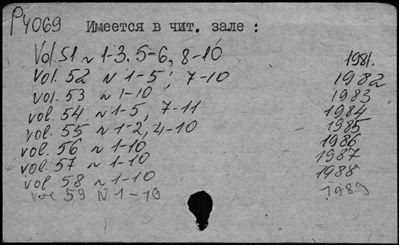 P4069 Имеется в чит. зале :
Vol. 51 N 1-3, 5-6, 8-10 1981.
Vol. 52 N 1-5; 7-10 1982
vol. 53 N 1-10 1983
vol. 54 N 1-5, 7-11 1984
vol. 55 N 1-2, 4-10 1985
vol. 56 N 1-10 1986
vol. 57 N 1-10 1987
vol. 58 N 1-10 1988
vol 59 N 1-10 1989